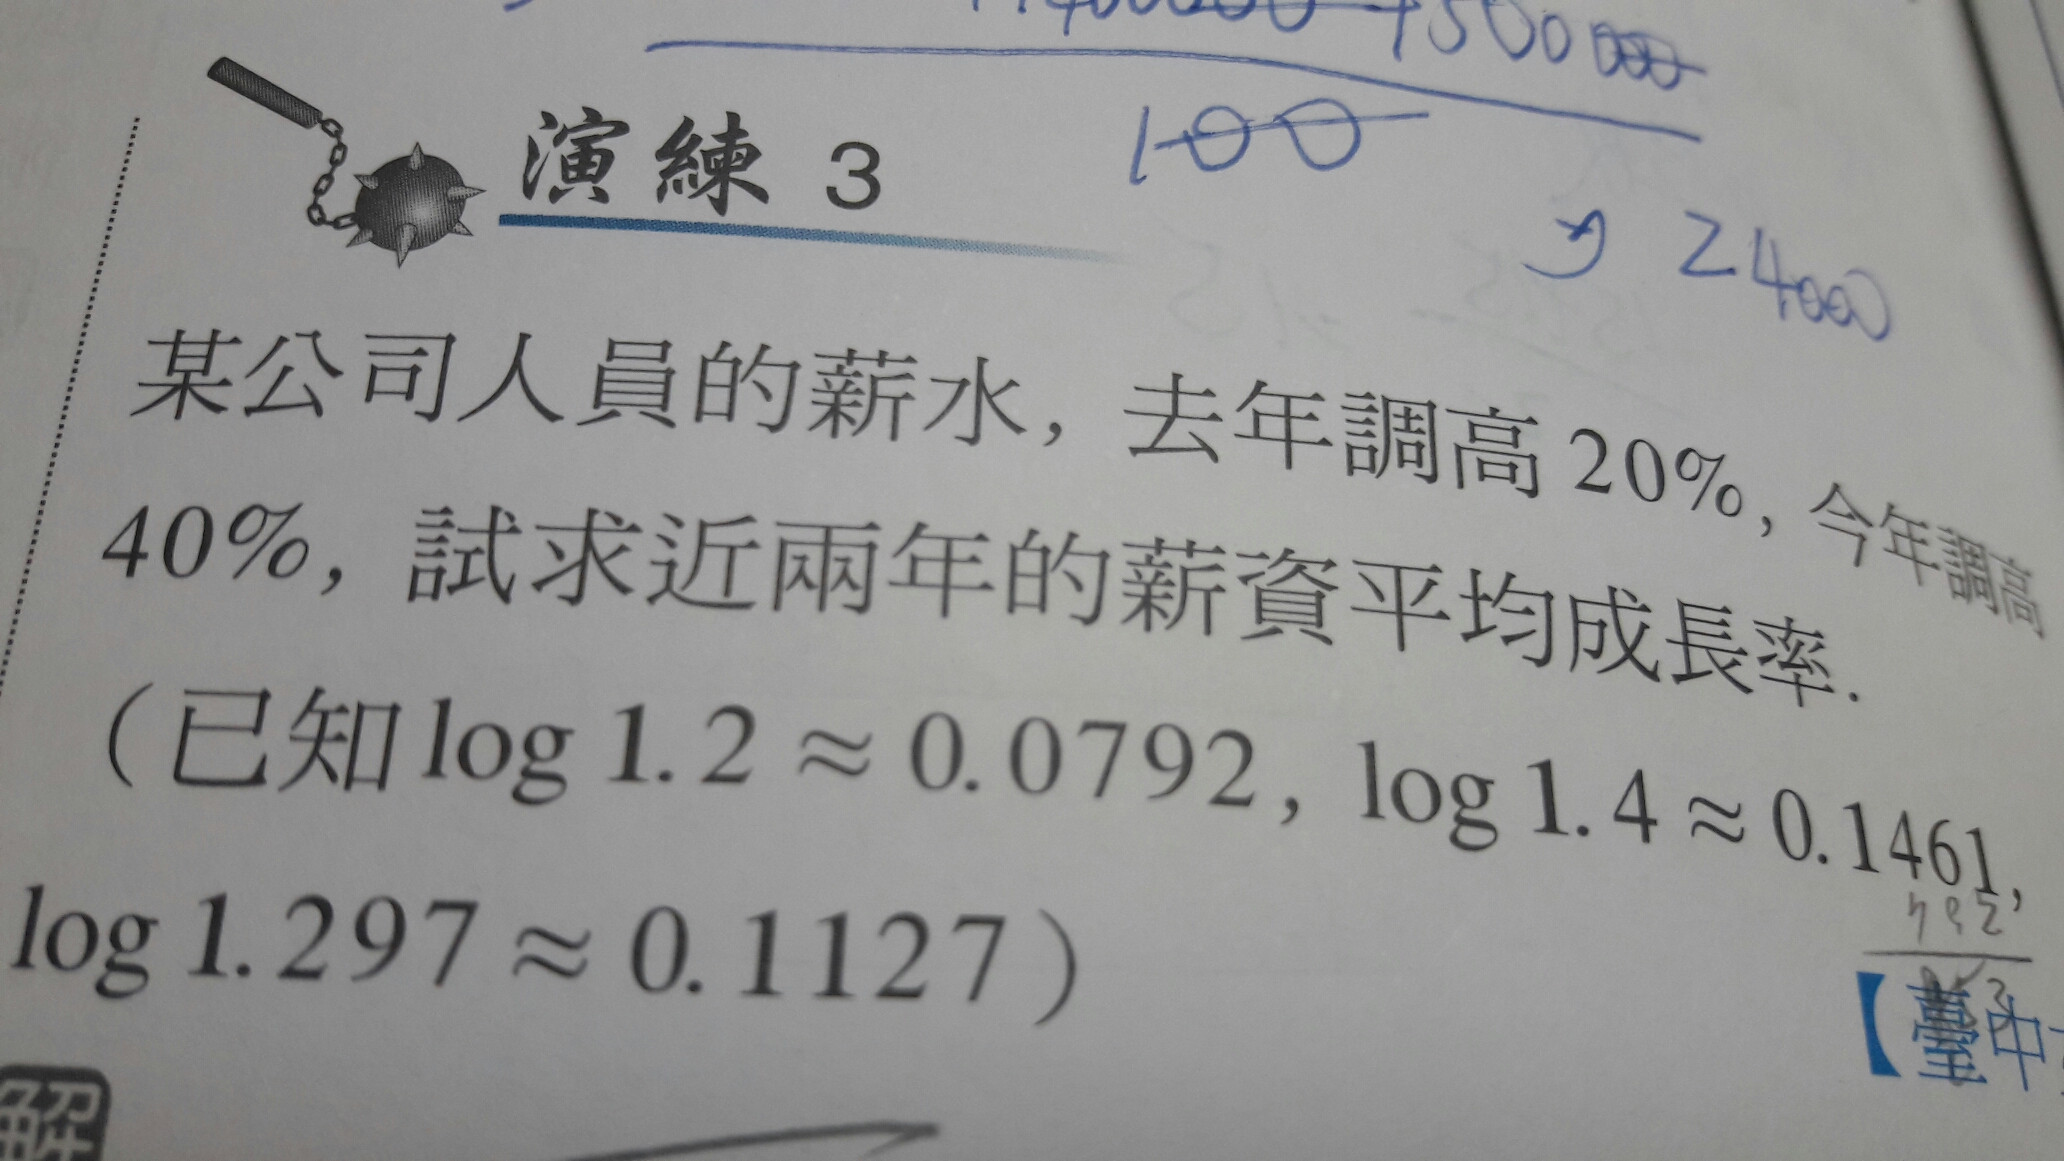 演練 3
100
24000
某公司人員的薪水,去年調高20%,今年調高
40%,試求近兩年的薪資平均成長率.
(已知log 1.2≈0.0792, log 1.4≈0.1461,
log 1.297≈0.1127)
792
【臺中
解